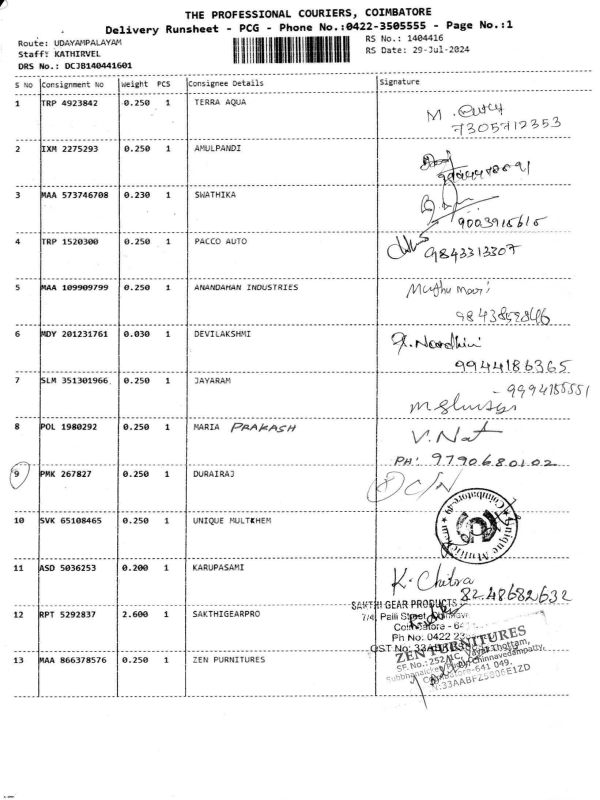 THE PROFESSIONAL COURIERS, COIMBATORE
Delivery Runsheet - PCG - Phone No.:0422-3505555 - Page No.:1
Route: UDAYAMPALAYAM
RS No.: 1404416
Staff: KATHIRVEL
RS Date: 29-Jul-2024
DRS No.: DCJB140441601
S No Consignment No Weight PCS Consignee Details Signature
1 TRP 4923842 0.250 1 TERRA AQUA M.
7305712353
2 IXM 2275293 0.250 1 AMULPANDI
3 MAA 573746708 0.230 1 SWATHIKA
9003915615
4 TRP 1520300 0.250 1 PACCO AUTO
9843313307
5 MAA 109909799 0.250 1 ANANDAHAN INDUSTRIES Muthu mari
6 MDY 201231761 0.030 1 DEVILAKSHMI Nandhini
9944186365
7 SLM 351301966 0.250 1 JAYARAM - 9994155551
8 POL 1980292 0.250 1 MARIA PRAKASH V. Nat
PH: 9790680102
9 PMK 267827 0.250 1 DURAIRAJ C/N
10 SVK 65108465 0.250 1 UNIQUE MULTKHEM
Coimbatore-49
Unique
11 ASD 5036253 0.200 1 KARUPASAMI K. Chitra
8248682632
12 RPT 5292837 2.600 1 SAKTHIGEARPRO SAKTHI GEAR PRODUCTS
7/4, Palli Street,
Coimbatore - 64
Ph No: 0422
13 MAA 866378576 0.250 1 ZEN PURNITURES ZEN FURNITURES
SF.No.: 252/1C, Thottam,
Chinnavedampatty,
Coimbatore-641 049.